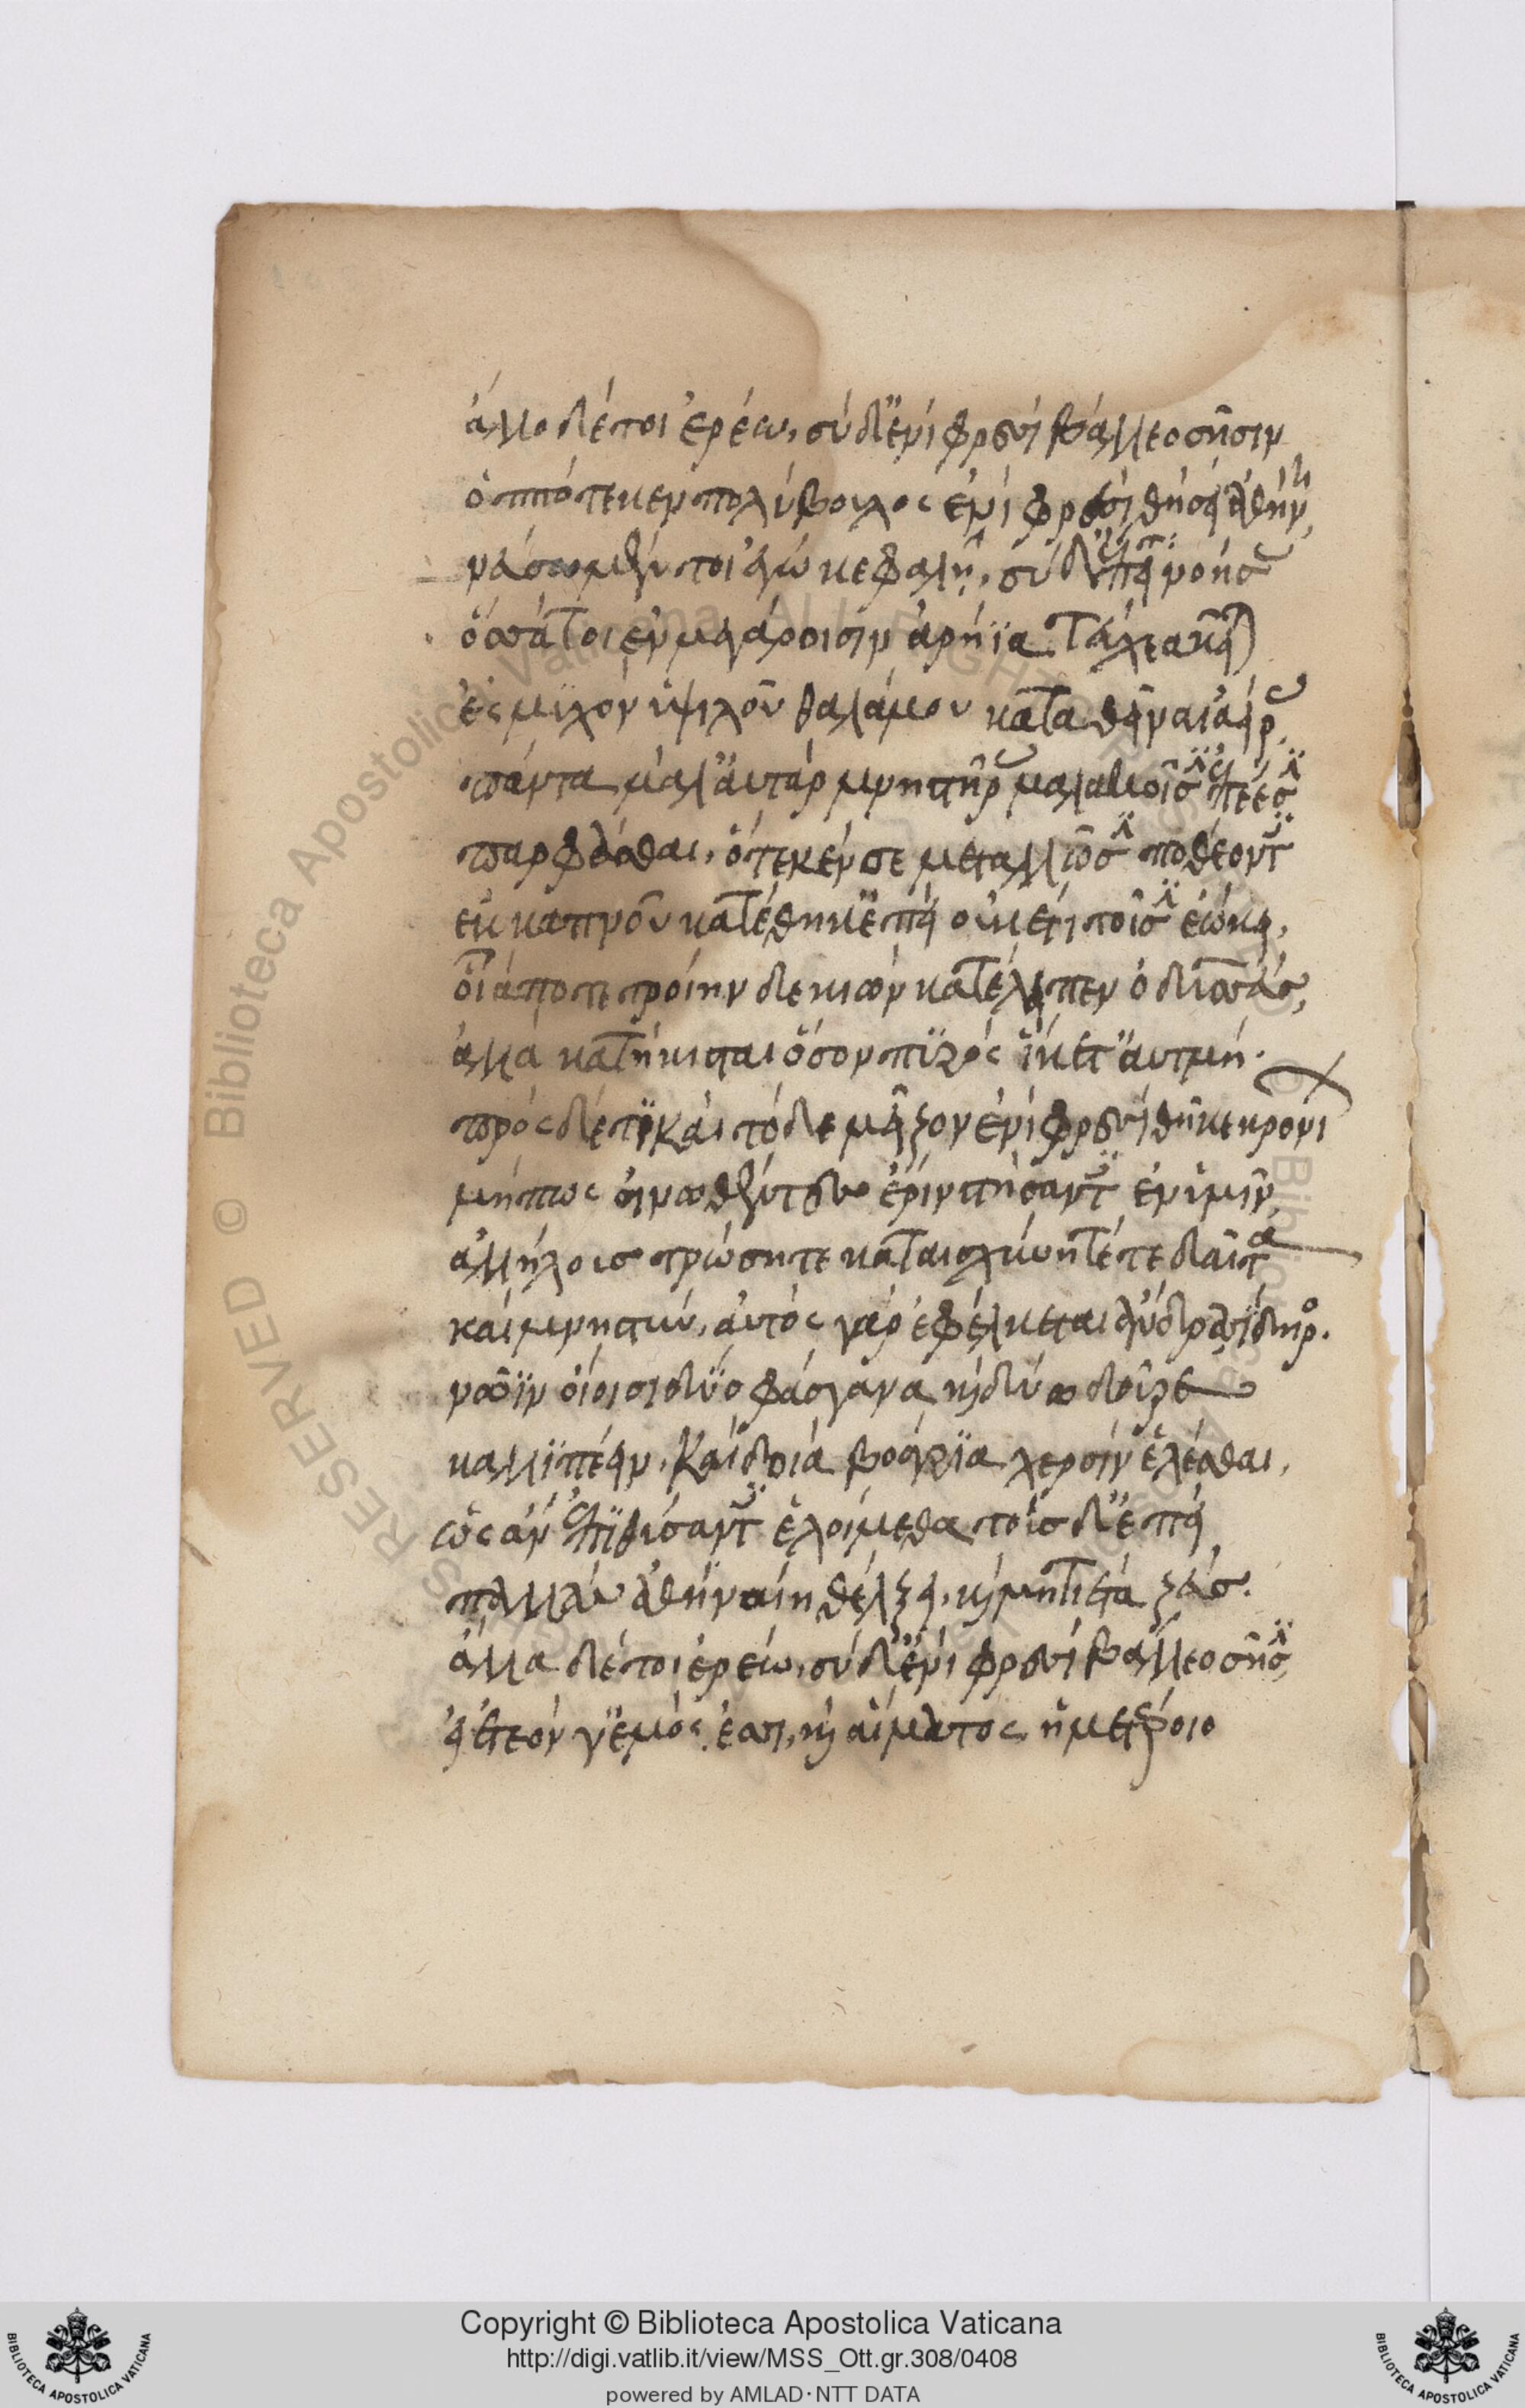 ἄλλο δέ τοι ἐρέω, σὺ δ' ἐνὶ φρεσὶ βάλλεο σῆσιν
ὁππότε κεν πολύβουλος ἐνὶ φρεσὶ θήσει ἀθήνη,
νεύσω μέν τοι ἐγὼ κεφαλῇ, σὺ δ' ἔπειτα νοήσας
ὅσσά τοι ἐν μεγάροισιν ἀρήϊα τεύχεα κεῖται
ἐς μυχὸν ὑψηλοῦ θαλάμου καταθεῖναι ἀείρας
πάντα μάλ' αὐτὰρ μνηστῆρας μαλακοῖς ἐπέεσσι
παρφάσθαι, ὅτε κέν σε μεταλλῶσιν ποθέοντες
ἐκ καπνοῦ κατέθηκ' ἐπεὶ οὐκέτι τοῖσιν ἐῴκει,
οἷά ποτε τροίην δε κιὼν κατέλειπεν ὀδυσσεύς,
ἀλλὰ κατήκισται ὅσον πυρὸς ἵκετ' ἀυτμή.
πρὸς δ' ἔτι καὶ τόδε μεῖζον ἐνὶ φρεσὶ θῆκε κρονίων
μήπως οἰνωθέντες ἔριν στήσαντες ἐν ὑμῖν,
ἀλλήλους τρώσητε καταισχύνητέ τε δαῖτα
καὶ μνηστύν, αὐτὸς γὰρ ἐφέλκεται ἄνδρα σίδηρος.
νῶϊν οἴοισι δύο φάσγανα καὶ δύο δοῦρε
καλλιπέειν, καὶ δοιὰ βοάγρια χερσὶν ἑλέσθαι,
ὡς ἂν ἐπιθύσαντες ἑλοίμεθα τοὺς δ' ἔπει
παλλὰς ἀθηναίη θέλξει, καὶ μητίετα ζεύς.
ἄλλα δέ τοι ἐρέω, σὺ δ' ἐνὶ φρεσὶ βάλλεο σῆσιν,
εἰ ἐτεόν γ' ἐμός ἐσσι, καὶ αἵματος ἡμετέροιο
Copyright © Biblioteca Apostolica Vaticana
http://digi.vatlib.it/view/MSS_Ott.gr.308/0408
powered by AMLAD·NTT DATA